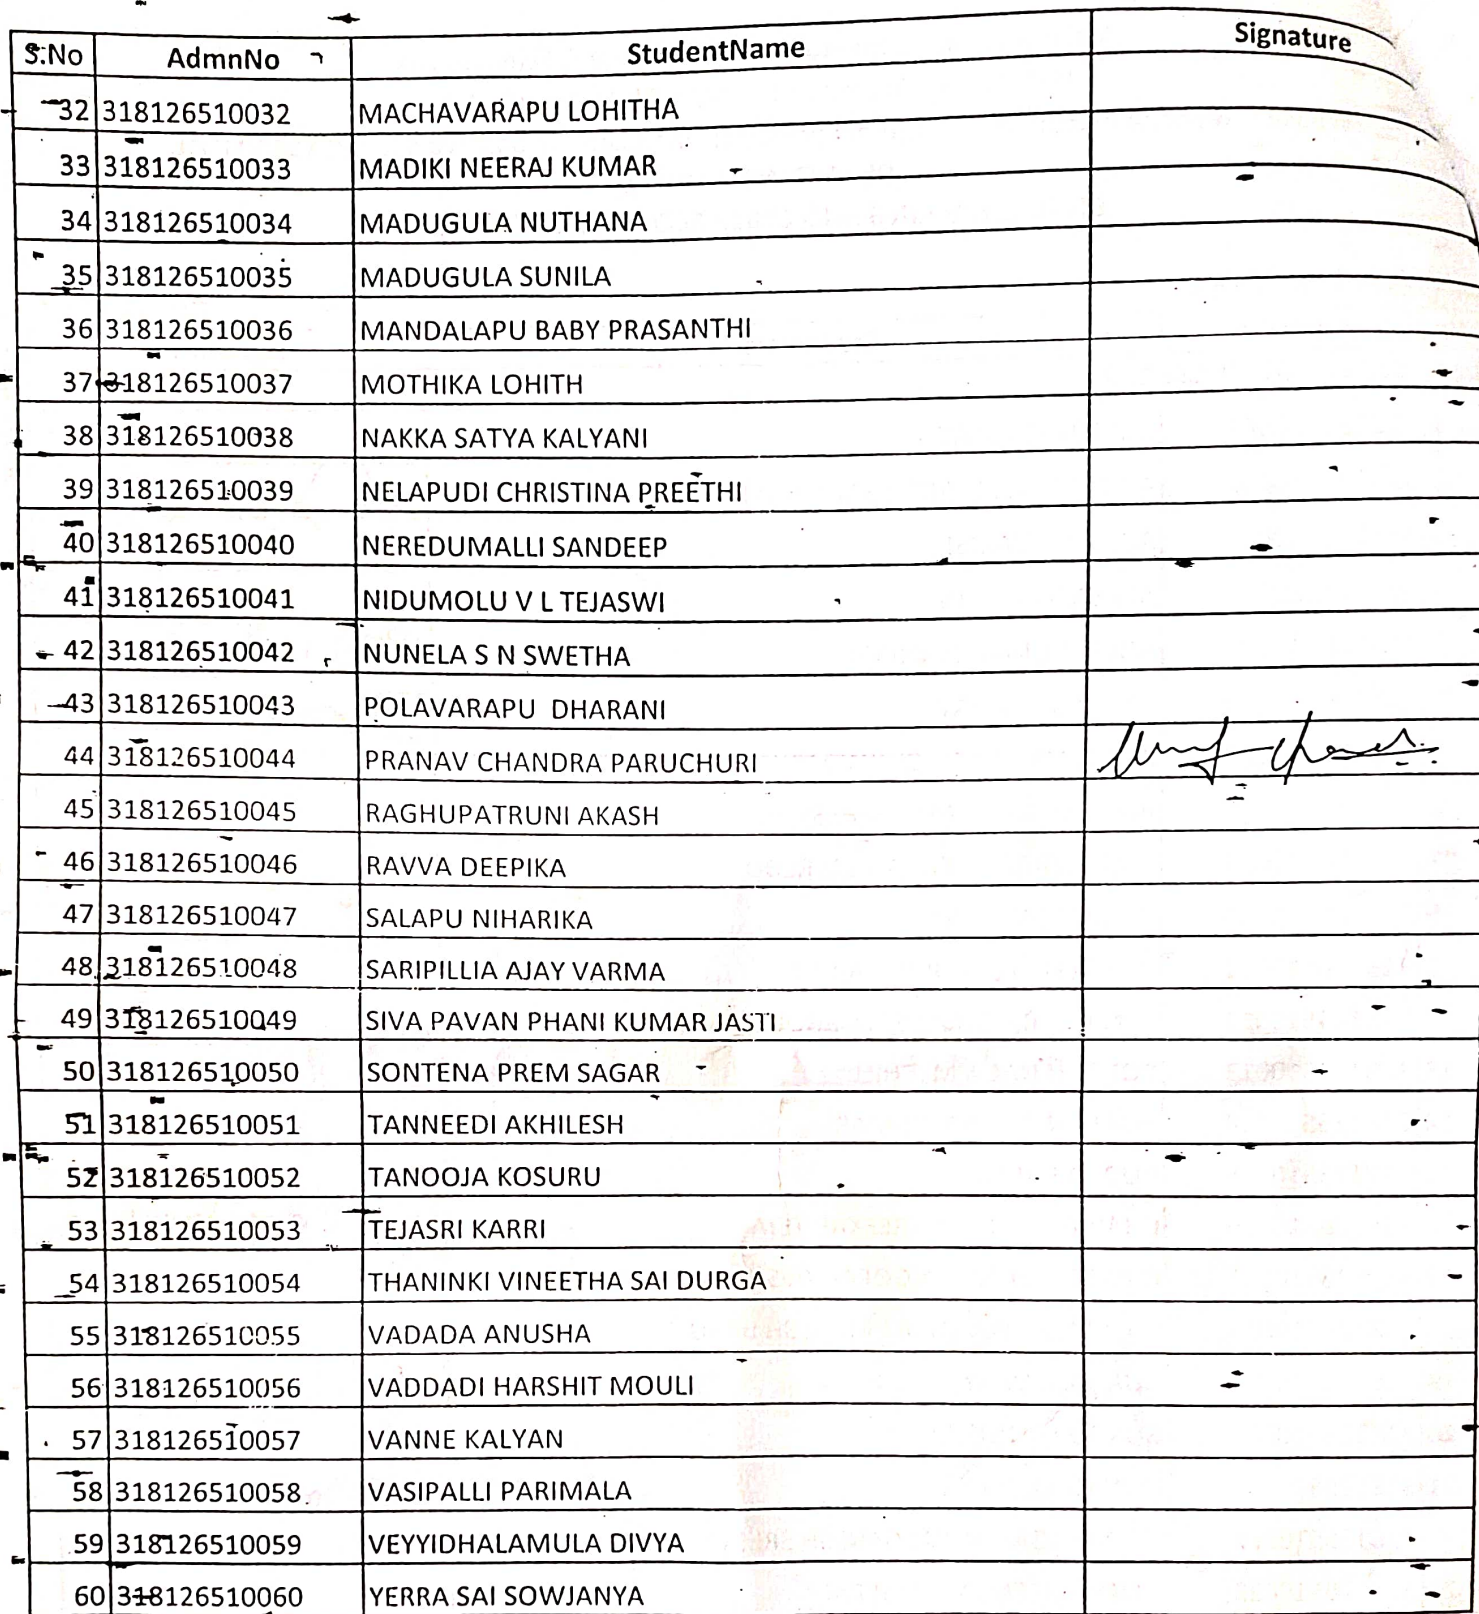 S.No AdmnNo StudentName Signature
32 318126510032 MACHAVARAPU LOHITHA
33 318126510033 MADIKI NEERAJ KUMAR
34 318126510034 MADUGULA NUTHANA
35 318126510035 MADUGULA SUNILA
36 318126510036 MANDALAPU BABY PRASANTHI
37 318126510037 MOTHIKA LOHITH
38 318126510038 NAKKA SATYA KALYANI
39 318126510039 NELAPUDI CHRISTINA PREETHI
40 318126510040 NEREDUMALLI SANDEEP
41 318126510041 NIDUMOLU V L TEJASWI
42 318126510042 NUNELA S N SWETHA
43 318126510043 POLAVARAPU DHARANI
44 318126510044 PRANAV CHANDRA PARUCHURI
45 318126510045 RAGHUPATRUNI AKASH
46 318126510046 RAVVA DEEPIKA
47 318126510047 SALAPU NIHARIKA
48 318126510048 SARIPILLIA AJAY VARMA
49 318126510049 SIVA PAVAN PHANI KUMAR JASTI
50 318126510050 SONTENA PREM SAGAR
51 318126510051 TANNEEDI AKHILESH
52 318126510052 TANOOJA KOSURU
53 318126510053 TEJASRI KARRI
54 318126510054 THANINKI VINEETHA SAI DURGA
55 318126510055 VADADA ANUSHA
56 318126510056 VADDADI HARSHIT MOULI
57 318126510057 VANNE KALYAN
58 318126510058 VASIPALLI PARIMALA
59 318126510059 VEYYIDHALAMULA DIVYA
60 318126510060 YERRA SAI SOWJANYA